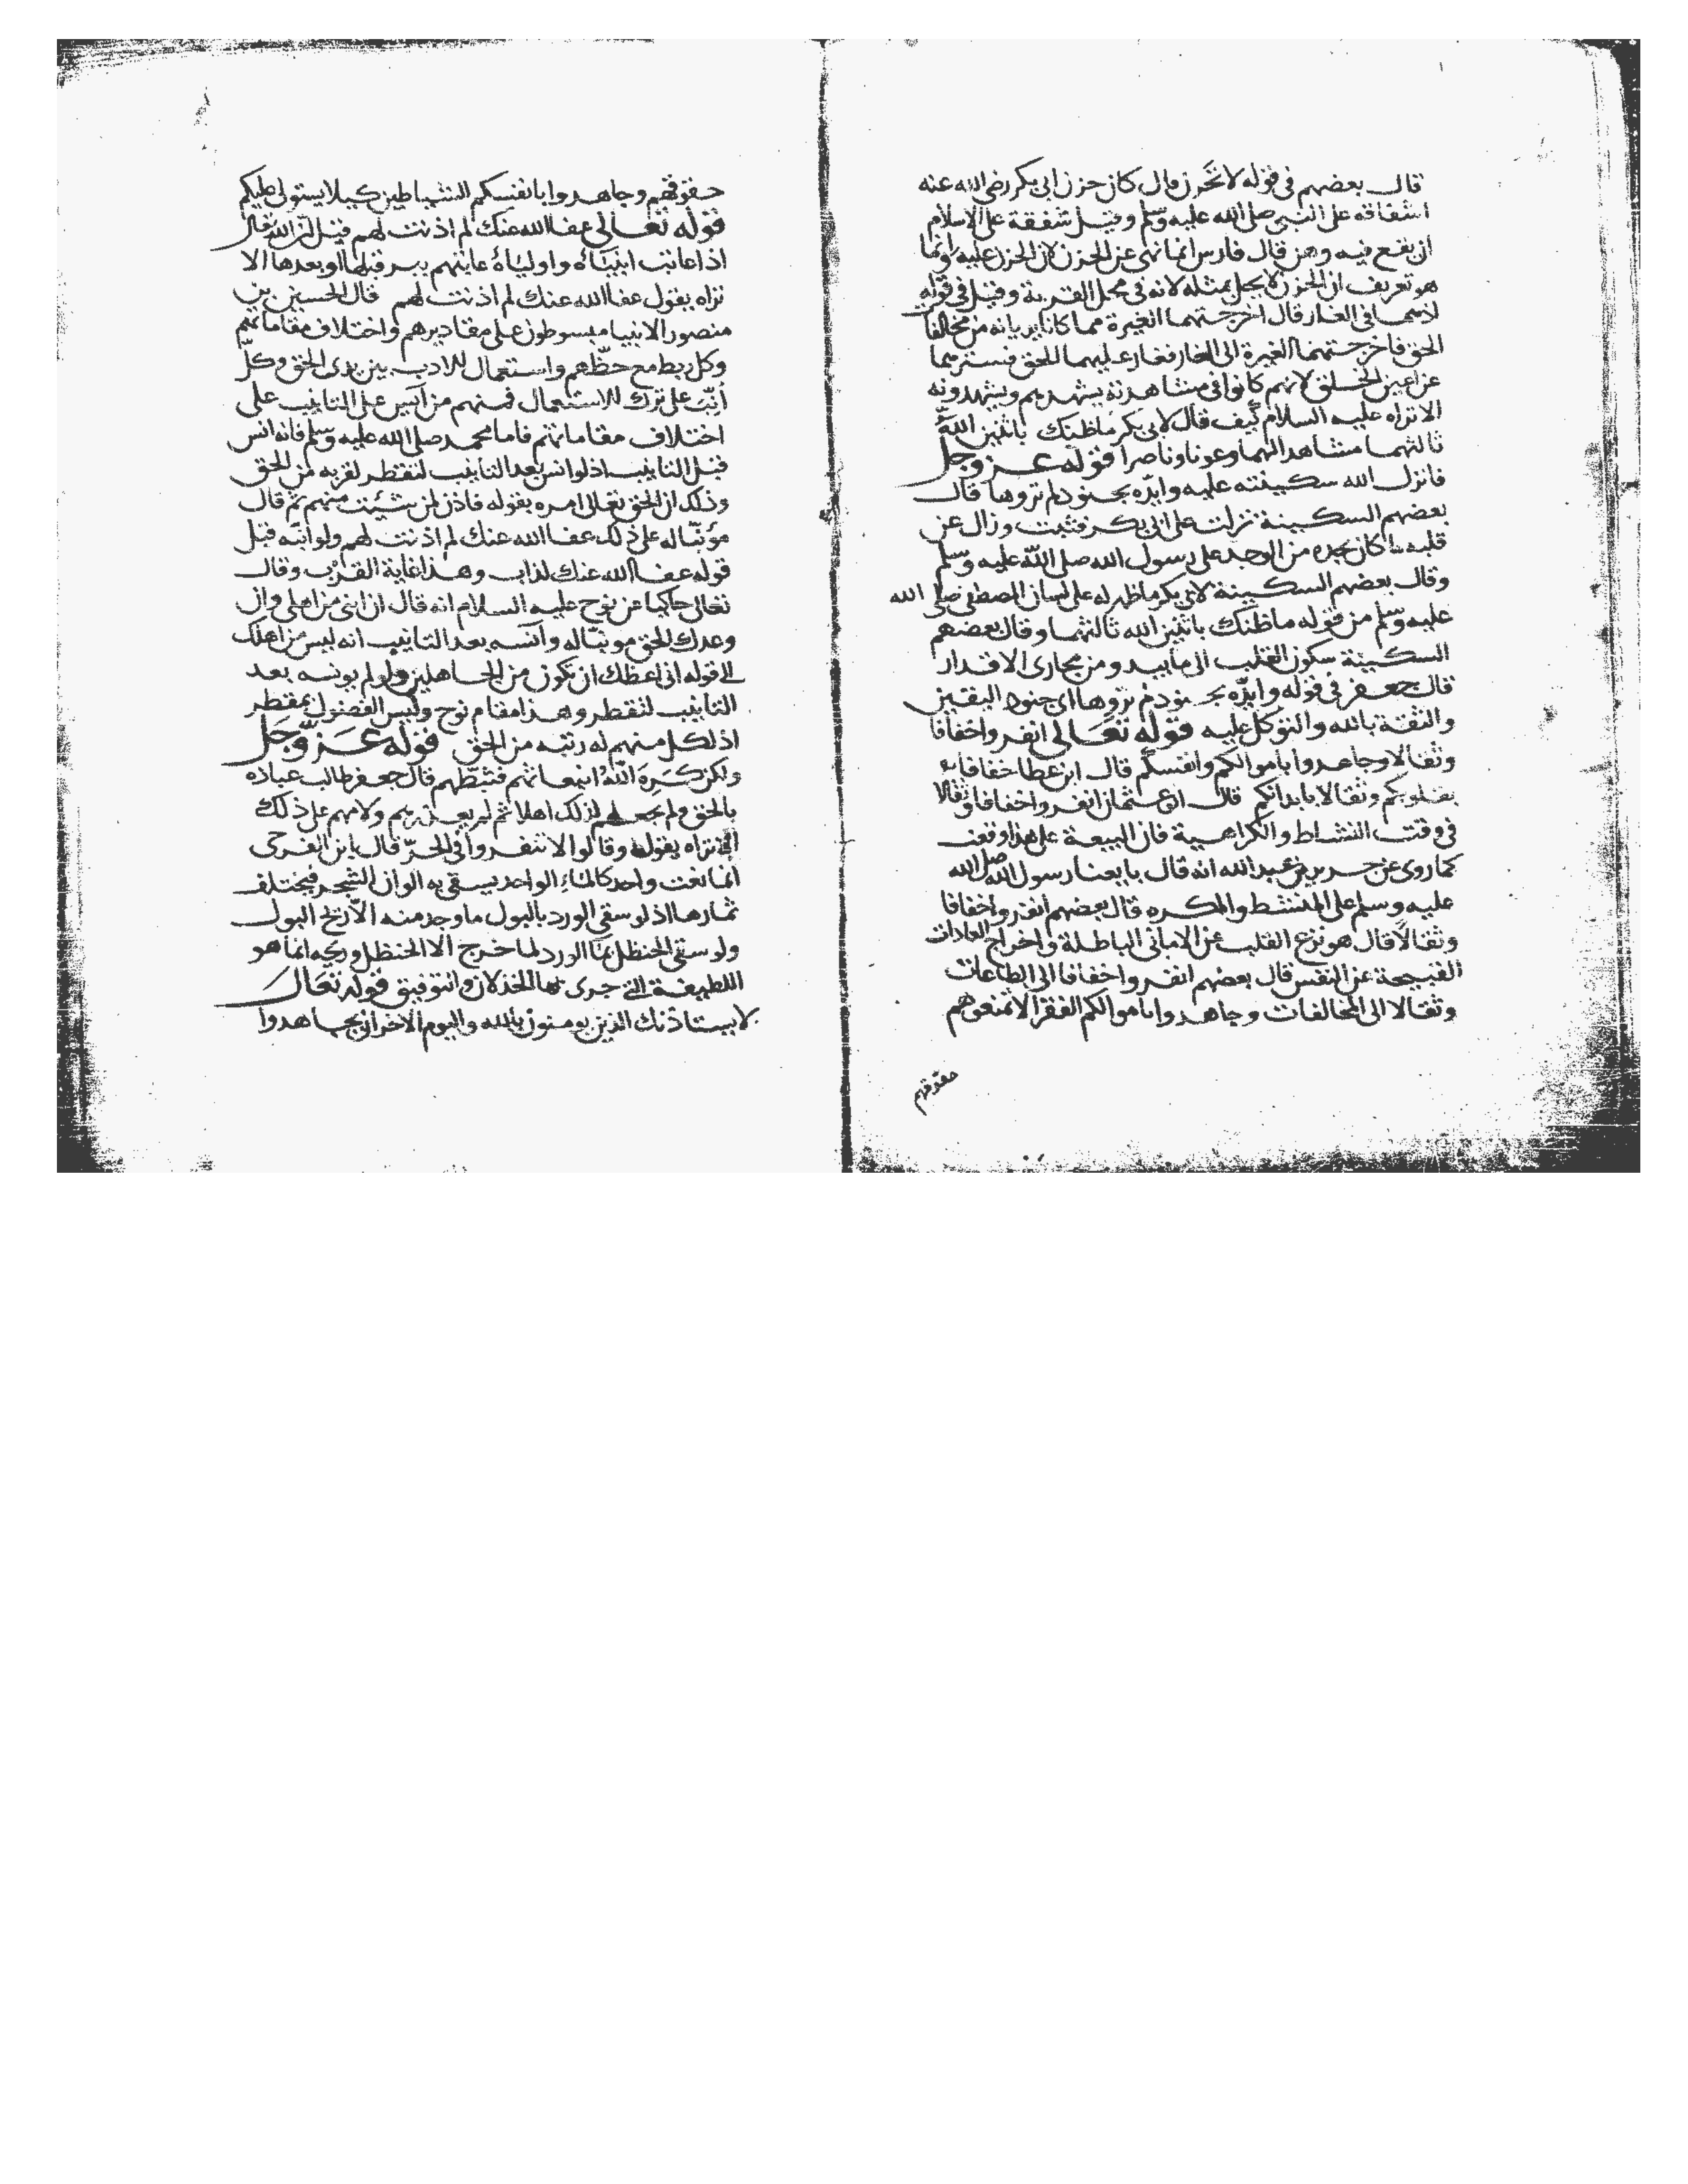 قال بعضهم في قوله لا تحزن قال كان حزن ابي بكر رضي الله عنه
اشفاقه على النبي صلى الله عليه وسلم وقيل شفقة على الاسلام
ان يقع فيه وهن قال فارس انما نهى عن الحزن لان الحزن عليه وانما
هو تعريف ان الحزن لا يحل بمثله لانه في محل القربة وقيل في قوله
اذ هما في الغار قال اخرجتهما الغيرة مما كانا يريانه من مخالفا
الحق فاخرجتهما الغيرة الى الغار فغار عليهما الحق فسترهما
عن اعين الخلق لانهم كانوا في مشاهدته يشهدهم ويشهدونه
الا تراه عليه السلام كيف قال لابي بكر ما ظنك باثنين الله
ثالثهما مشاهدا لهما وعونا وناصرا قوله عز وجل
فانزل الله سكينته عليه وايده بجنود لم تروها قال
بعضهم السكينة نزلت على ابي بكر فثبت وزال عن
قلبه ما كان يجده من الوجد على رسول الله صلى الله عليه وسلم
وقال بعضهم السكينة لابي بكر ما ظهر له على لسان المصطفى صلى الله
عليه وسلم من قوله ما ظنك باثنين الله ثالثهما وقال بعضهم
السكينة سكون القلب الى ما يبدو من مجاري الاقدار
قال جعفر في قوله وايده بجنود لم تروها اي جنود اليقين
والثقة بالله والتوكل عليه قوله تعالى انفروا خفافا
وثقالا وجاهدوا باموالكم وانفسكم قال ابن عطا خفافا
بقلوبكم وثقالا بابدانكم قال ابو عثمان انفروا خفافا وثقالا
في وقت النشاط والكراهية فان البيعة على هذا وقعت
كما روى عن جرير بن عبد الله انه قال بايعنا رسول الله صلى الله
عليه وسلم على المنشط والمكره قال بعضهم انفروا خفافا
وثقالا قال هو نزع القلب عن الاماني الباطلة واخراج العادات
القبيحة عن النفس قال بعضهم انفروا خفافا الى الطاعات
وثقالا الى المخالفات وجاهدوا باموالكم الفقرا لا تمنعوهم
حقوقهم
حقوقهم وجاهدوا بانفسكم الشياطين كيلا يستولي عليكم
قوله تعالى عفا الله عنك لم اذنت لهم قيل ان الله قال
اذا عاتب انبياه واولياه عاتبهم ببر قبلها او بعدها الا
تراه يقول عفا الله عنك لم اذنت لهم قال الحسين بن
منصور الانبيا مبسوطون على مقاديرهم واختلاف مقاماتهم
وكل ربط مع حظهم واستعمال للادب بين يدي الحق وكل
انب على ترك الاستعمال فمنهم من انس على التانيب على
اختلاف مقاماتهم فاما محمد صلى الله عليه وسلم فانه انس
قبل التانيب اذ لو انس بعد التانيب لتفطر لقربه من الحق
وذلك ان الحق تعالى امره بقوله فاذن لمن شئت منهم ثم قال
مؤنبا له على ذلك عفا الله عنك لم اذنت لهم ولو انبه قبل
قوله عفا الله عنك لذاب وهذا غاية القرب وقال
تعالى حاكيا عن نوح عليه السلام انه قال ان ابني من اهلي وان
وعدك الحق مونبا له وانسه بعد التانيب انه ليس من اهلك
الى قوله اني اعظك ان تكون من الجاهلين ولو لم يونسه بعد
التانيب لتفطر وهذا مقام نوح وليس المفضول بمقطر
اذ لكل منهم له رتبه من الحق قوله عز وجل
ولكن كره الله انبعاثهم فثبطهم قال جعفر طالب عباده
بالحق ولم يجعلهم لذلك اهلا ثم لم يعذرهم ولامهم على ذلك
الا تراه يقول وقالوا لا تنفروا في الحر قال ابن الفرحي
انما نعت واحد كالماء الواحد يسقي به الوان الشجر فيختلف
ثمارها اذ لو سقي الورد بالبول ما وجد منه الا ريح البول
ولو سقي الحنظل بما الورد لما خرج الا الحنظل وريحه انما هو
اللطيفة التي جرى بها الخذلان والتوفيق قوله تعالى
لا يستاذنك الذين يومنون بالله واليوم الاخر ان يجاهدوا